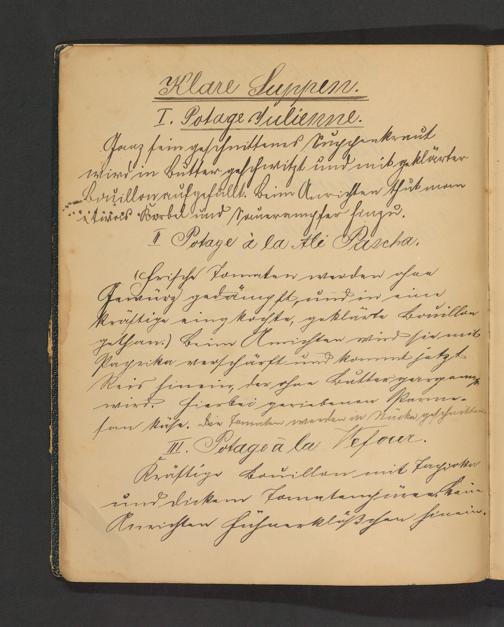 Klare Suppen.
I. Potage Julienne.
Ganz fein geschnittenes Suppenkraut
wird in Butter geschwitzt und mit geklärter
Bouillon aufgefüllt. Beim Anrichten thut man
etwas Körbel und Sauerampfer hinzu.
II Potage à la Ali Pascha.
(Frische Tomaten werden ohne
Gewürz gedämpft, und in eine
kräftige eingekochte, geklärte Bouillon
gethan.) Beim Anrichten wird sie mit
Paprika verschärft und kommt jetzt
Reis hinein, der ohne Butter
wird. Hierbei geriebenen Parme-
san käse. Die Tomaten werden in Stücke geschnitten
III. Potage à la Vefour.
Kräftige Bouillon mit Tapioka
und dickem Tomatenpüree beim
Anrichten Hühnerklößchen hinein.